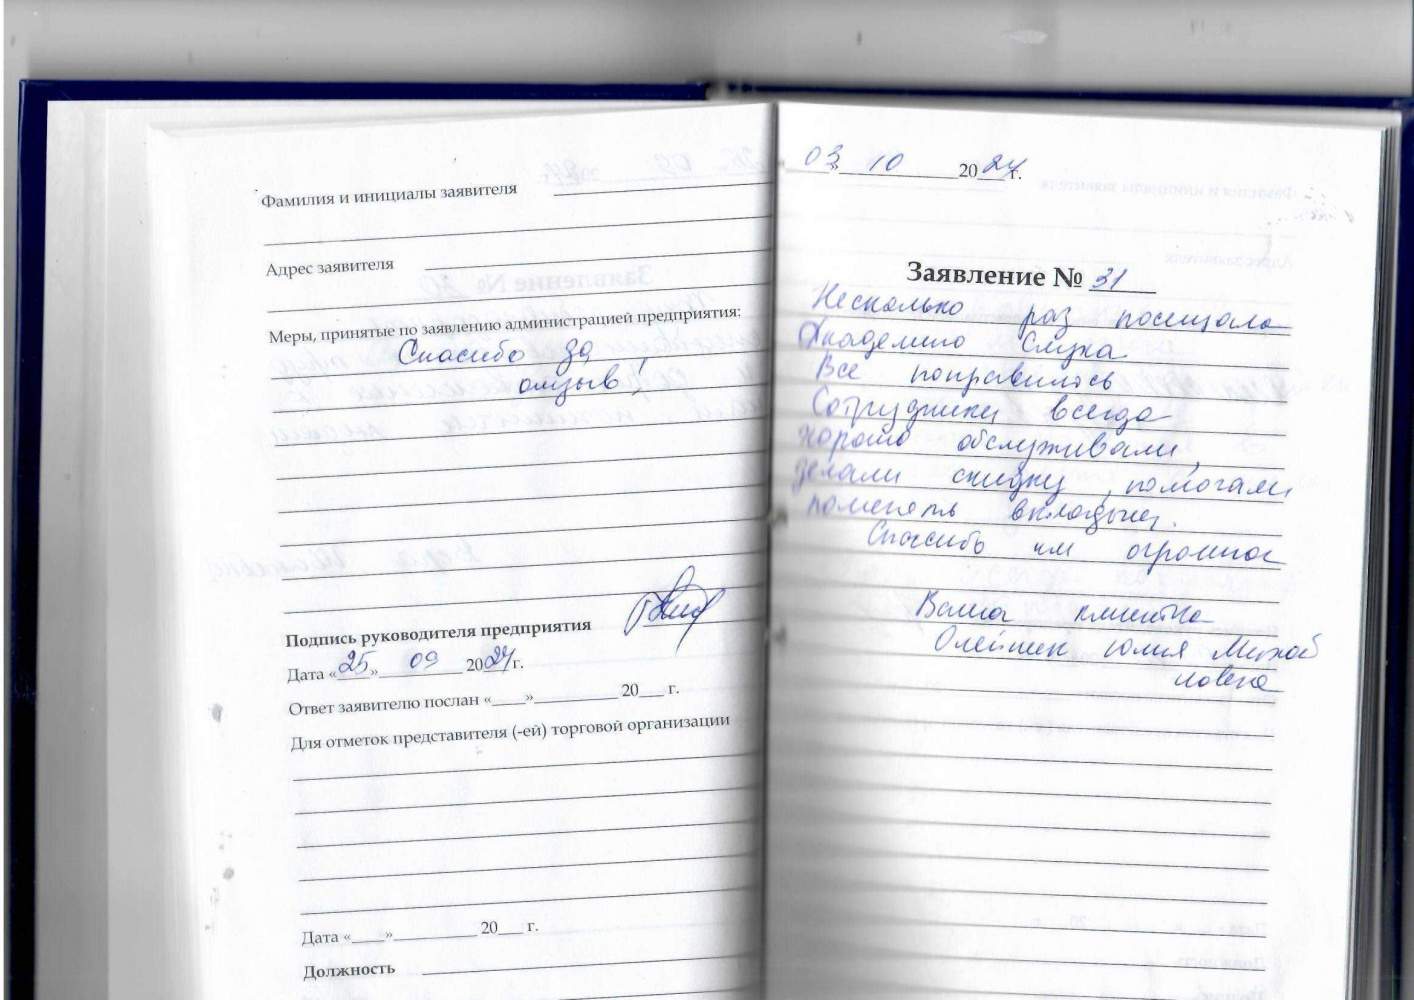 Фамилия и инициалы заявителя
Адрес заявителя
Меры, принятые по заявлению администрацией предприятия:
Спасибо за
отзыв!
Подпись руководителя предприятия
Дата «25» 09 2024г.
Ответ заявителю послан «____»__________ 20___ г.
Для отметок представителя (-ей) торговой организации
Дата «____»__________ 20___ г.
Должность
03 » 10 2024г.
Заявление № 31
Несколько раз посещала
Академию Слуха
Все понравилось
Сотрудники всегда
хорошо обслуживали,
делали скидку, помогали
поменять вкладыши.
Спасибо им огромное
Ваша клиентка
Олейник Юлия Михай
ловна